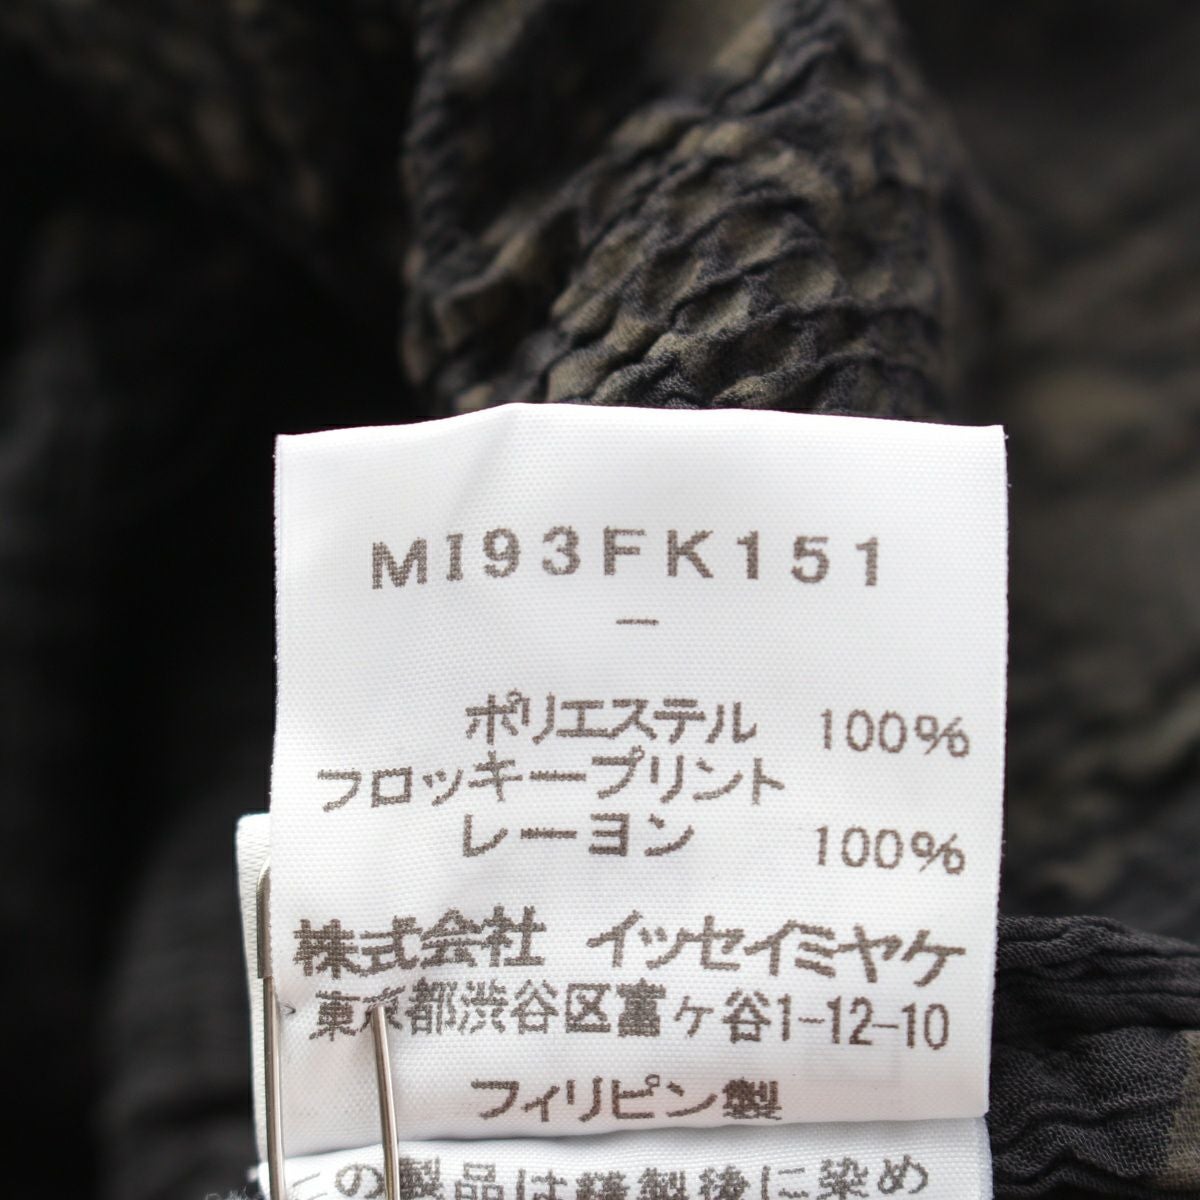 MI93FK151
—
ポリエステル 100%
フロッキープリント
レーヨン 100%
株式会社 イッセイミヤケ
東京都渋谷区富ヶ谷1-12-10
フィリピン製
この製品は縫製後に染め